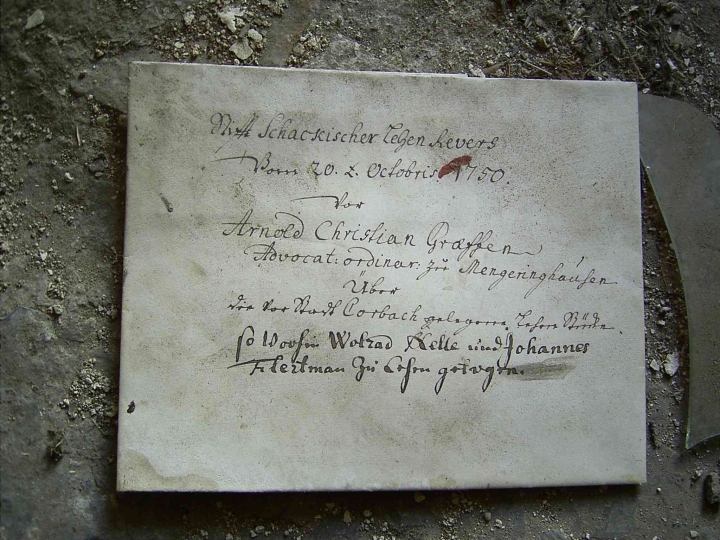 Stifft Schackischer Lehen Revers
Vom 20. t. Octobris 1750.
Vor
Arnold Christian Græffen
Advocat: ordinar: zu Mengeringhausen
Über
die vor Stadt Corbach gelegene Lehen Stücke
so Wolrad Kelle und Johannes
zu Lehen getragen.